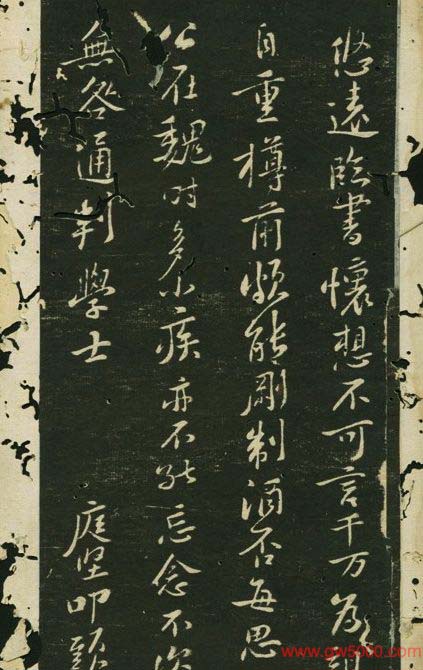 悠遠臨書懷想不可言千万為
自重樽前頗能剛制酒否每思
公在魏時多小疾亦不能忘念不次
無咎通判學士
庭堅叩頭
www.gw5000.com